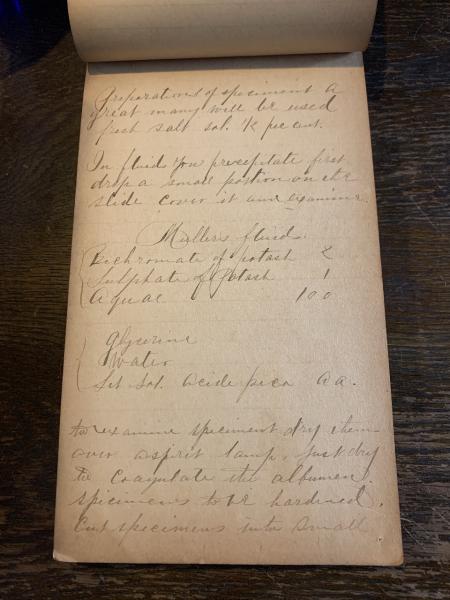 Preparations of speciment A
great many will be used
fresh salt sol. ½ per cent.
In fluids you precipitate first
drop a small portion on the
slide cover it and examine
Mullers fluid.
Bichromate of potash 2
Sulphate of Potash 1
Aquae 100
Glycerine
Water
Sol. acide picr aa.
to examine speciment dry them
over a spirit lamp, just dry
to coagulate the albumen.
specimens to be hardned.
Cut specimens into small